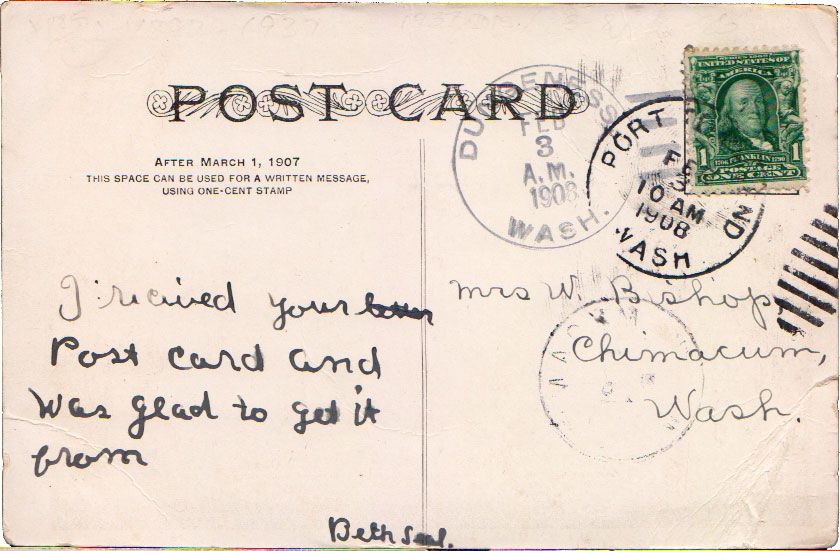 POST CARD
AFTER MARCH 1, 1907
THIS SPACE CAN BE USED FOR A WRITTEN MESSAGE,
USING ONE-CENT STAMP
DUNGENESS
FEB
3
A.M.
1908
WASH.
PORT
10 AM
1908
WASH
UNITED STATES OF
AMERICA
1706 FRANKLIN 1790
1 1
POSTAGE
ONE CENT
I recieved your letter
Post card and
was glad to get it
from
Beth Seal.
Mrs W. Bishop,
Chimacum,
Wash.